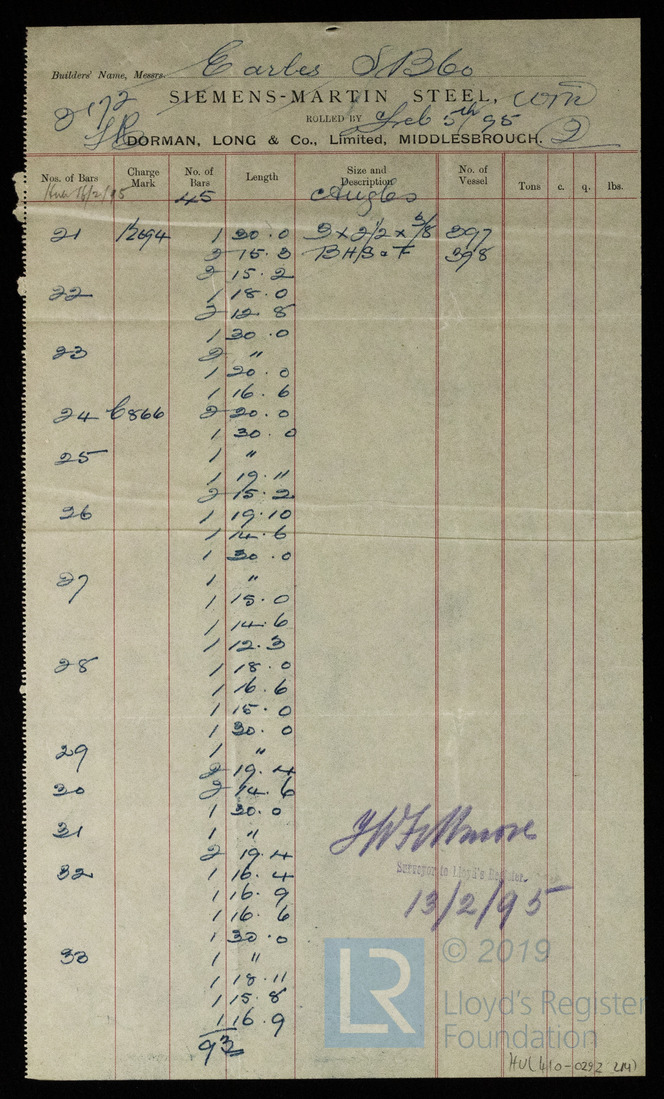 Builders' Name, Messrs. Earles S B Co
2172
SIEMENS-MARTIN STEEL,
ROLLED BY Feb 5th/95
DORMAN, LONG & Co., Limited, MIDDLESBROUGH. 2
Nos. of Bars Charge Mark No. of Bars Length Size and Description No. of Vessel Tons c. q. lbs.
16/2/95 45 Angles
21 B2694 1 30.0 3 x 2 1/2 x 3/8 397
2 15.3 BHS & F 398
2 15.2
22 1 18.0
2 12.8
1 30.0
23 2 "
1 20.0
1 16.6
24 C866 2 20.0
1 30.0
25 1 "
1 19.11
2 15.2
26 1 19.10
1 14.6
1 30.0
27 1 "
1 15.0
1 14.6
1 12.3
28 1 18.0
1 16.6
1 15.0
1 30.0
29 1 "
2 19.4
30 2 14.6
1 30.0
31 1 "
2 19.4
32 1 16.4
1 16.9
1 16.6
1 30.0
33 1 "
1 18.11
1 15.8
1 16.9
93
Surveyor to Lloyd's Register.
13/2/95
LR © 2019
Lloyd's Register
Foundation
HUL410-0292 2/4)